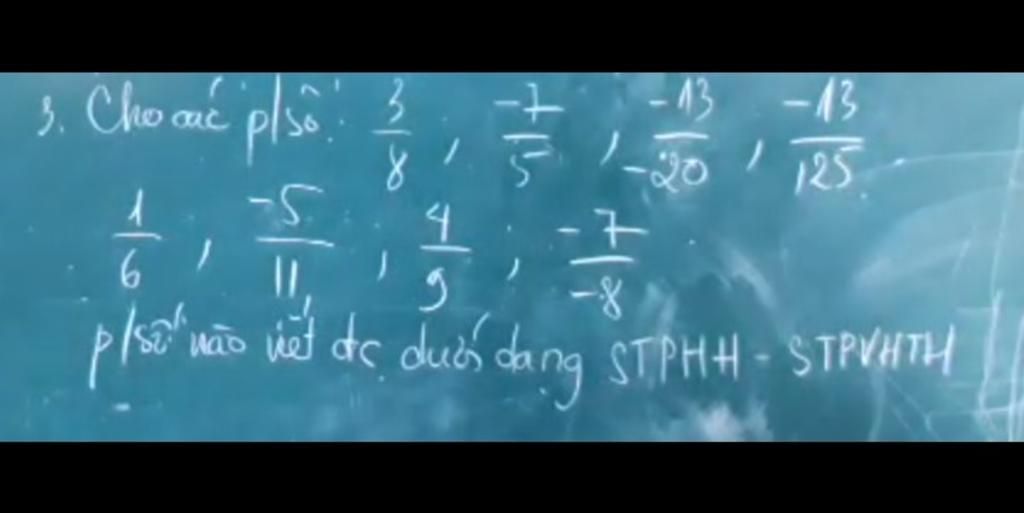 3. Cho các p/số: 3/8, -7/5, -13/-20, -13/125
1/6, -5/11, 4/9, -7/-8
p/số nào viết đc dưới dạng STPHH - STPVHTH